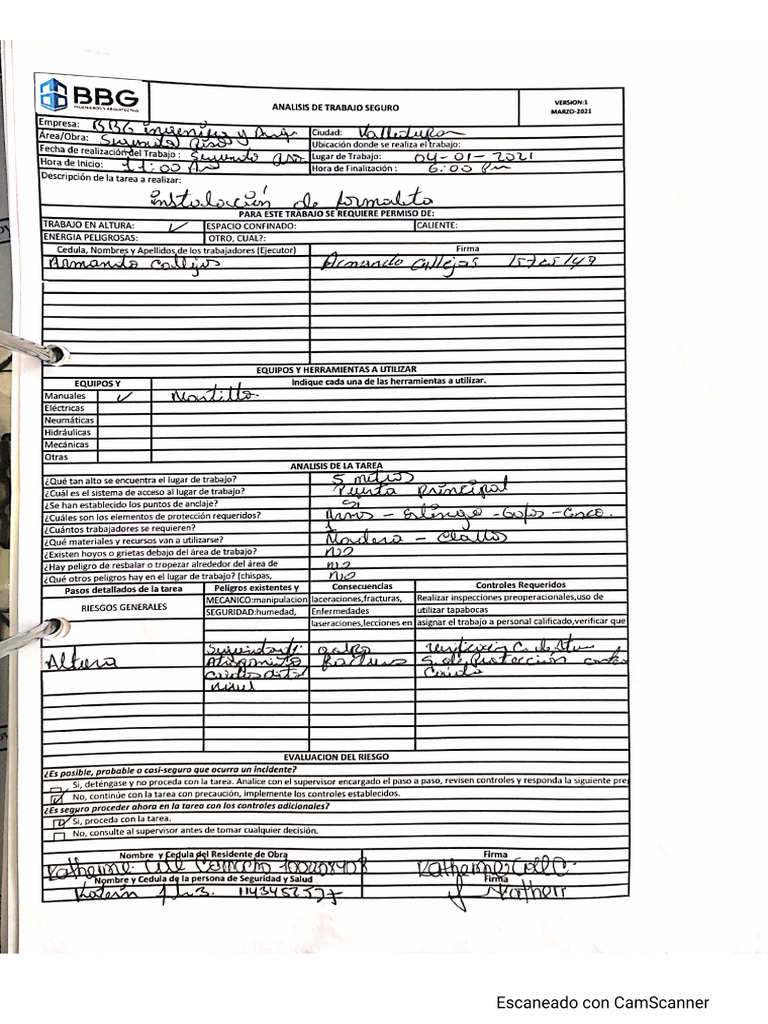 BBG
INGENIEROS Y ARQUITECTOS
ANALISIS DE TRABAJO SEGURO
VERSION:1
MARZO-2021
Empresa: BBG ingenieros y Arq Ciudad: Valledupar
Área/Obra: Segundo Piso Ubicación donde se realiza el trabajo:
Fecha de realización del Trabajo : Segundo Lugar de Trabajo: 04-01-2021
Hora de Inicio: 11:00 Am Hora de Finalización : 6:00 Pm
Descripción de la tarea a realizar:
instalación de formaleta
PARA ESTE TRABAJO SE REQUIERE PERMISO DE:
TRABAJO EN ALTURA: ✓ ESPACIO CONFINADO: CALIENTE:
ENERGIA PELIGROSAS: OTRO, CUAL?:
Cedula, Nombres y Apellidos de los trabajadores (Ejecutor) Firma
Armando Callejas Armando Callejas
EQUIPOS Y HERRAMIENTAS A UTILIZAR
EQUIPOS Y Indique cada una de las herramientas a utilizar.
Manuales ✓ Martillo.
Eléctricas
Neumáticas
Hidráulicas
Mecánicas
Otras
ANALISIS DE LA TAREA
¿Qué tan alto se encuentra el lugar de trabajo? 5 metros
¿Cuál es el sistema de acceso al lugar de trabajo? Puerta Principal
¿Se han establecido los puntos de anclaje? Si
¿Cuáles son los elementos de protección requeridos? Arnes - Eslinga - Gafas - Casco.
¿Cuántos trabajadores se requieren? 1
¿Qué materiales y recursos van a utilizarse? Madera - Clavos
¿Existen hoyos o grietas debajo del área de trabajo? NO
¿Hay peligro de resbalar o tropezar alrededor del área de no
¿Qué otros peligros hay en el lugar de trabajo? (chispas, NO
Pasos detallados de la tarea Peligros existentes y Consecuencias Controles Requeridos
RIESGOS GENERALES MECANICO:manipulacion laceraciones,fracturas, Realizar inspecciones preoperacionales,uso de
SEGURIDAD:humedad, Enfermedades utilizar tapabocas
laseraciones,lecciones en asignar el trabajo a personal calificado,verificar que
Seguridad: golpe Verificacion
Altura Atrapamiento fractura S. de Protección contra
Caidas distinto Caida
nivel
EVALUACION DEL RIESGO
¿Es posible, probable o casi-seguro que ocurra un incidente?
Si, deténgase y no proceda con la tarea. Analice con el supervisor encargado el paso a paso, revisen controles y responda la siguiente pre
No, continúe con la tarea con precaución, implemente los controles establecidos.
¿Es seguro proceder ahora en la tarea con los controles adicionales?
Si, proceda con la tarea.
No, consulte al supervisor antes de tomar cualquier decisión.
Nombre y Cedula del Residente de Obra Firma
Katherine Katherine
Nombre y Cedula de la persona de Seguridad y Salud Firma
1143452537 Katheri
Escaneado con CamScanner